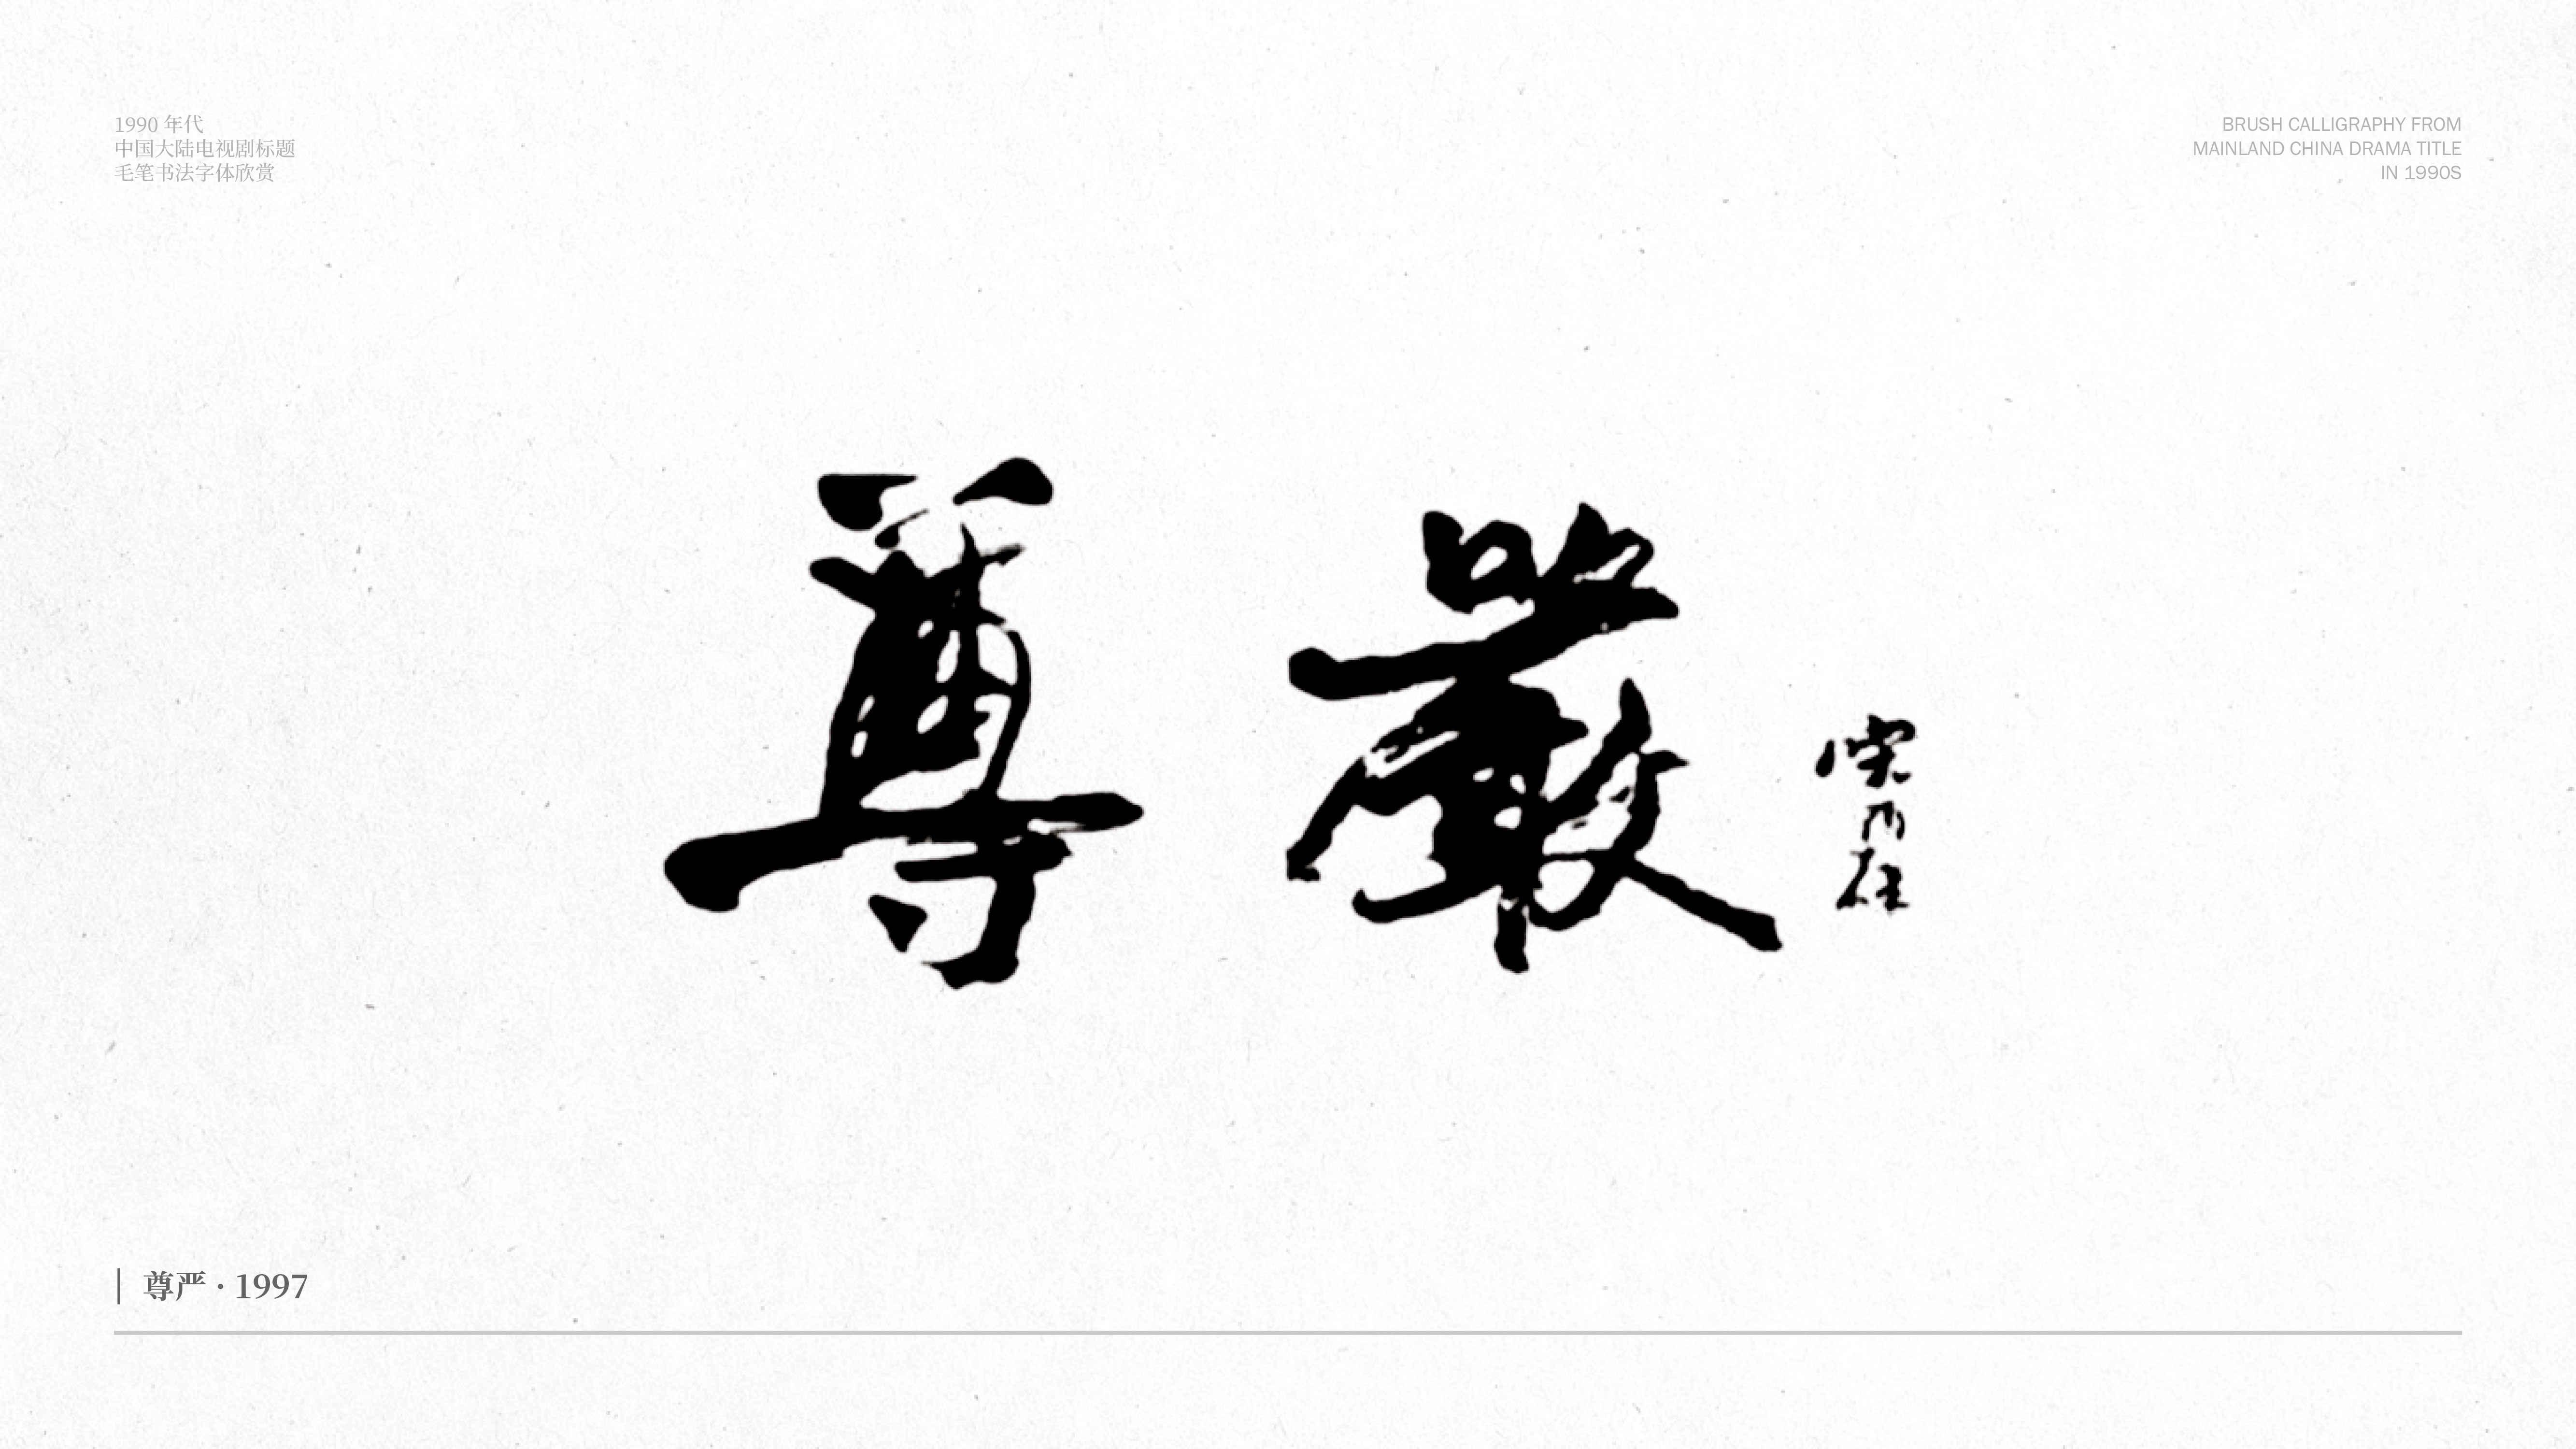 1990 年代
中国大陆电视剧标题
毛笔书法字体欣赏
BRUSH CALLIGRAPHY FROM
MAINLAND CHINA DRAMA TITLE
IN 1990S
尊嚴
尊严 · 1997